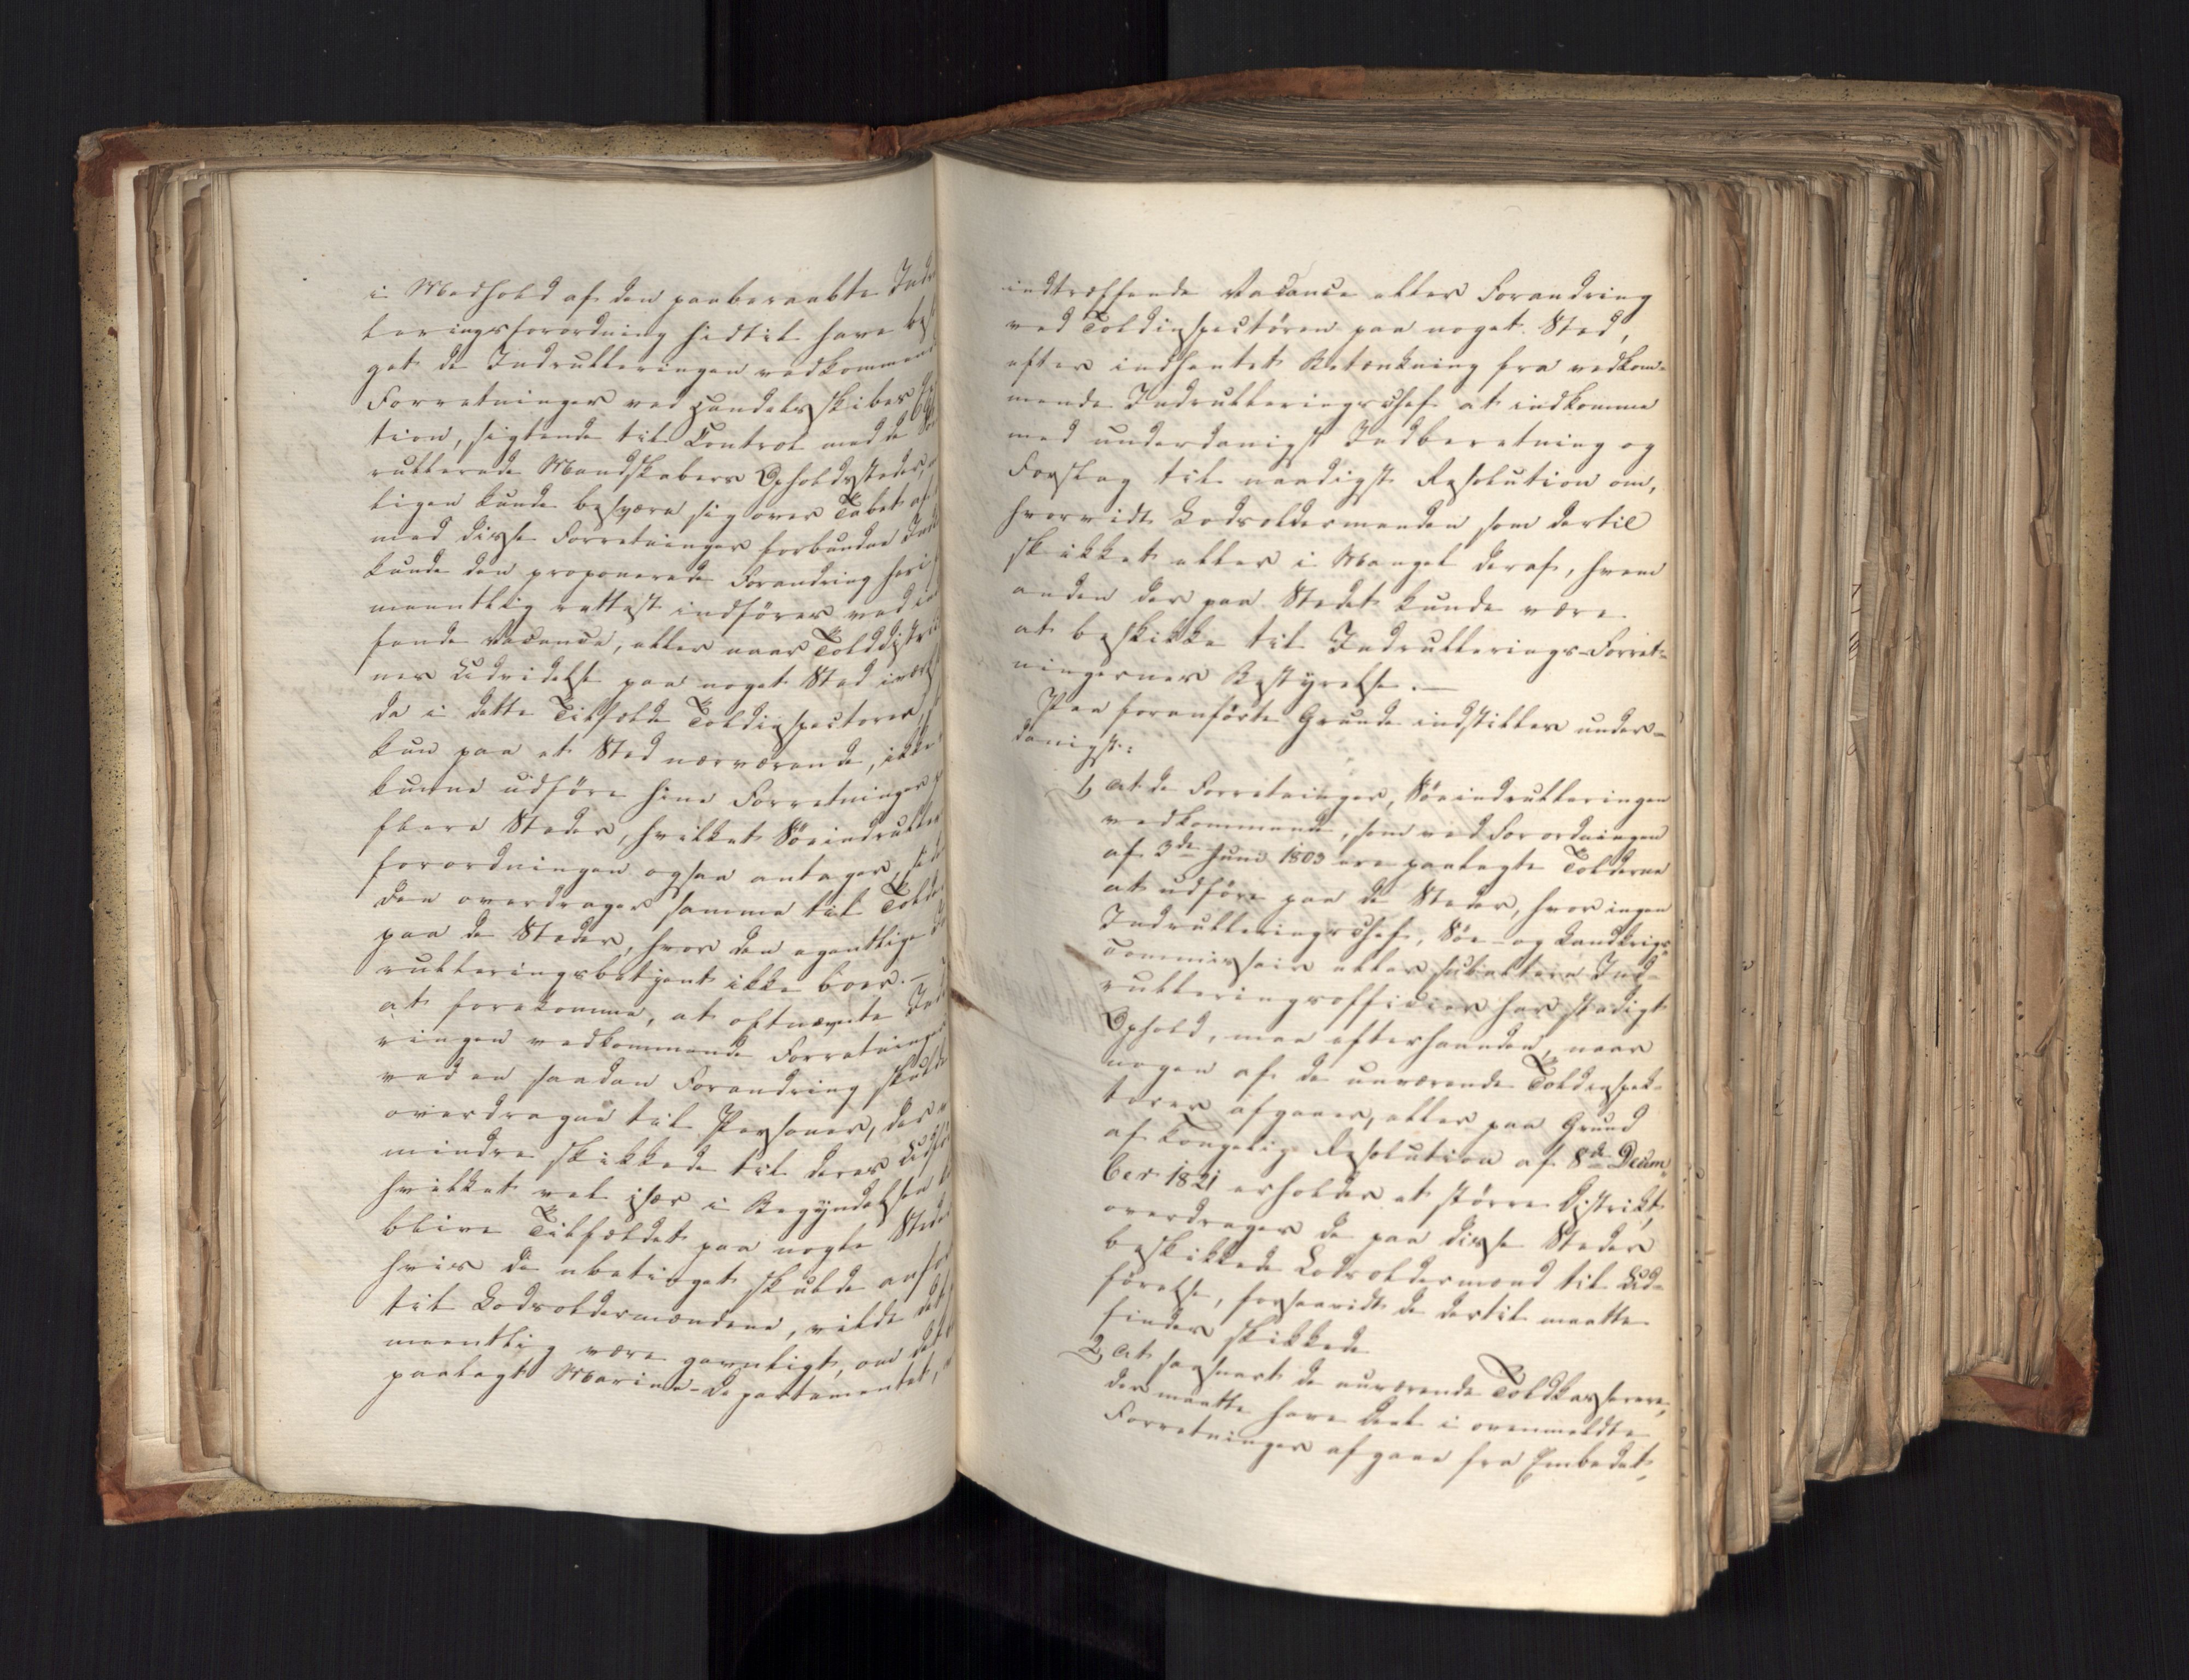 i Medhold af den paaberaabte Ind
leringsforordning hidtil have
get de Indrulleringen vedkommend
Forretninger ved Handelsskibes
tion, sigtende til Control med de
rullerede Mandskabers Opholdssteder,
ligen kunde besvære sig over Tabet af
med disse Forretninger forbundne
kunde den proponerede Forandring heri
meentlig rettest indføres ved
fende Vacance, eller naar Tolddistric
nes Udvidelse paa noget Sted
da i dette Tilfælde Toldinspectoren,
kun paa et Sted nærværende, ikke
kunne udføre hine Forretninger
flere Steder, hvilket Søeindruller
forordningen ogsaa antager,
den overdrager samme til Tolder
paa de Steder, hvor den egentlige
rulleringsbetjent ikke boer. –
at forekomme, at oftnævnte Ind
ringen vedkommende Forretninger
ved en saadan Forandring skulde
overdragne til Personer, der
mindre skikkede til deres Udfø
hvilket vel især i Begyndelsen
blive Tilfældet paa nogle Steder
hvis de ubetinget skulde
til Lodsoldermændene, vilde det
meentlig være gavnligt, om det
paalagt Marine-Departementet,
indtræffende Vacance eller Forandring
ved Toldinspectøren paa noget Sted,
efter indhentet Betænkning fra vedkom-
mende Indrulleringschef at indkomme
med underdanigst Indberetning og
Forslag til naadigst Resolution om,
hvorvidt Lodsoldermanden som dertil
skikket eller i Mangel deraf, hvem
anden der paa Stedet kunde være
at beskikke til Indrullerings-Forret-
ningernes Bestyrelse. –
Paa foranførte Grunde indstilles under-
danigst:
1, at de Forretninger, Søeindrulleringen
vedkommende, som ved Forordningen
af 3de Juni 1803 ere paalagte Tolderne
at udføre paa de Steder, hvor ingen
Indrulleringschef, Søe- og Landkrigs-
commissair eller subaltern Ind-
rulleringsofficier har stadigt
Ophold, maa efterhaanden, naar
nogen af de nuværende Toldinspek-
tører afgaaer, eller paa Grund
af Kongelig Resolution af 8de Decem-
ber 1821 erholder et større District,
overdrages de paa disse Steder
beskikkede Lodsoldermænd til Ud-
førelse, forsaavidt de dertil maatte
findes skikkede
2, at saasnart de nuværende Toldkasserere,
der maatte have Deel i ovenmeldte
Forretninger afgaae fra Embedet,